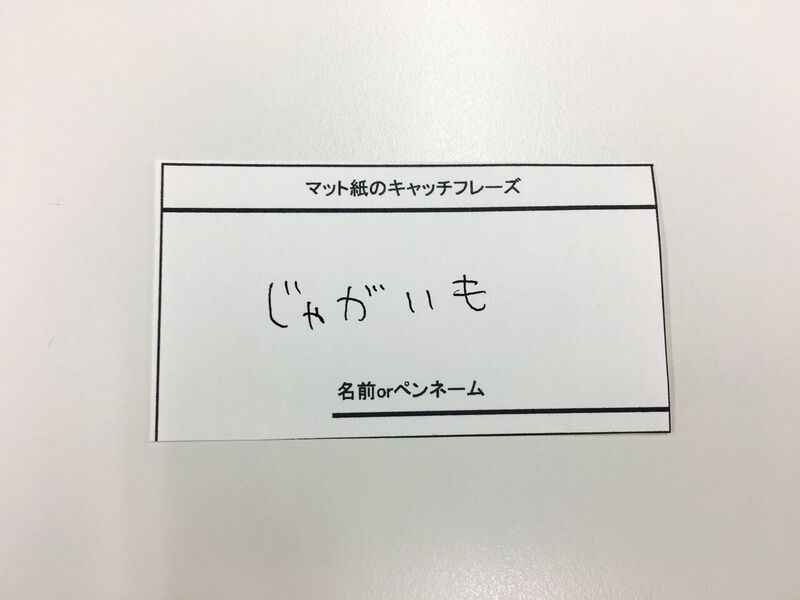 マット紙のキャッチフレーズ
じゃがいも
名前orペンネーム